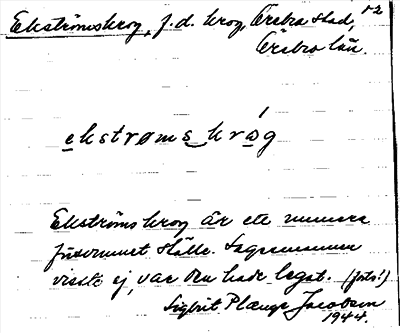 Ekströmskrog, f.d. krog, Örebro stad, 12
Örebro län.
ekstrømskróg
Ekströmskrog är ett numera
försvunnet ställe. Sagesmannen
visste ej, var den hade legat. (foto!)
Sigbrit Plænge Jacobson
1944.